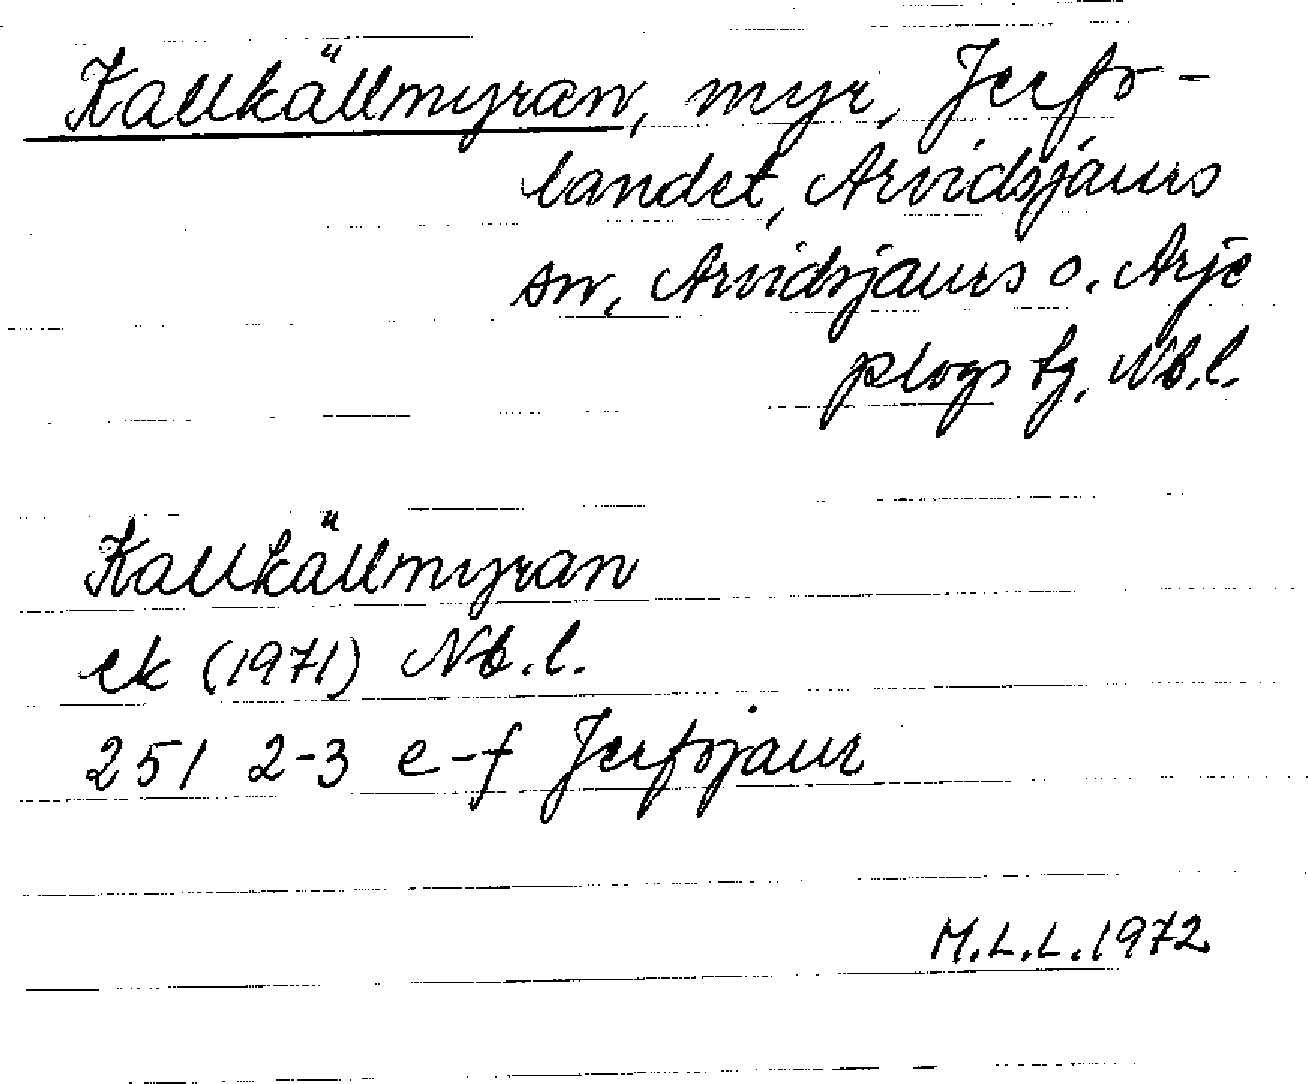 Kallkällmyran, myr, Jerfo-
landet, Arvidsjaurs
sn, Arvidsjaurs o. Arje
plogs tg, Nb.l.
Kallkällmyran
ek (1971) Nb.l.
251 2-3 e-f Jerfojaur
M.L.L. 1972